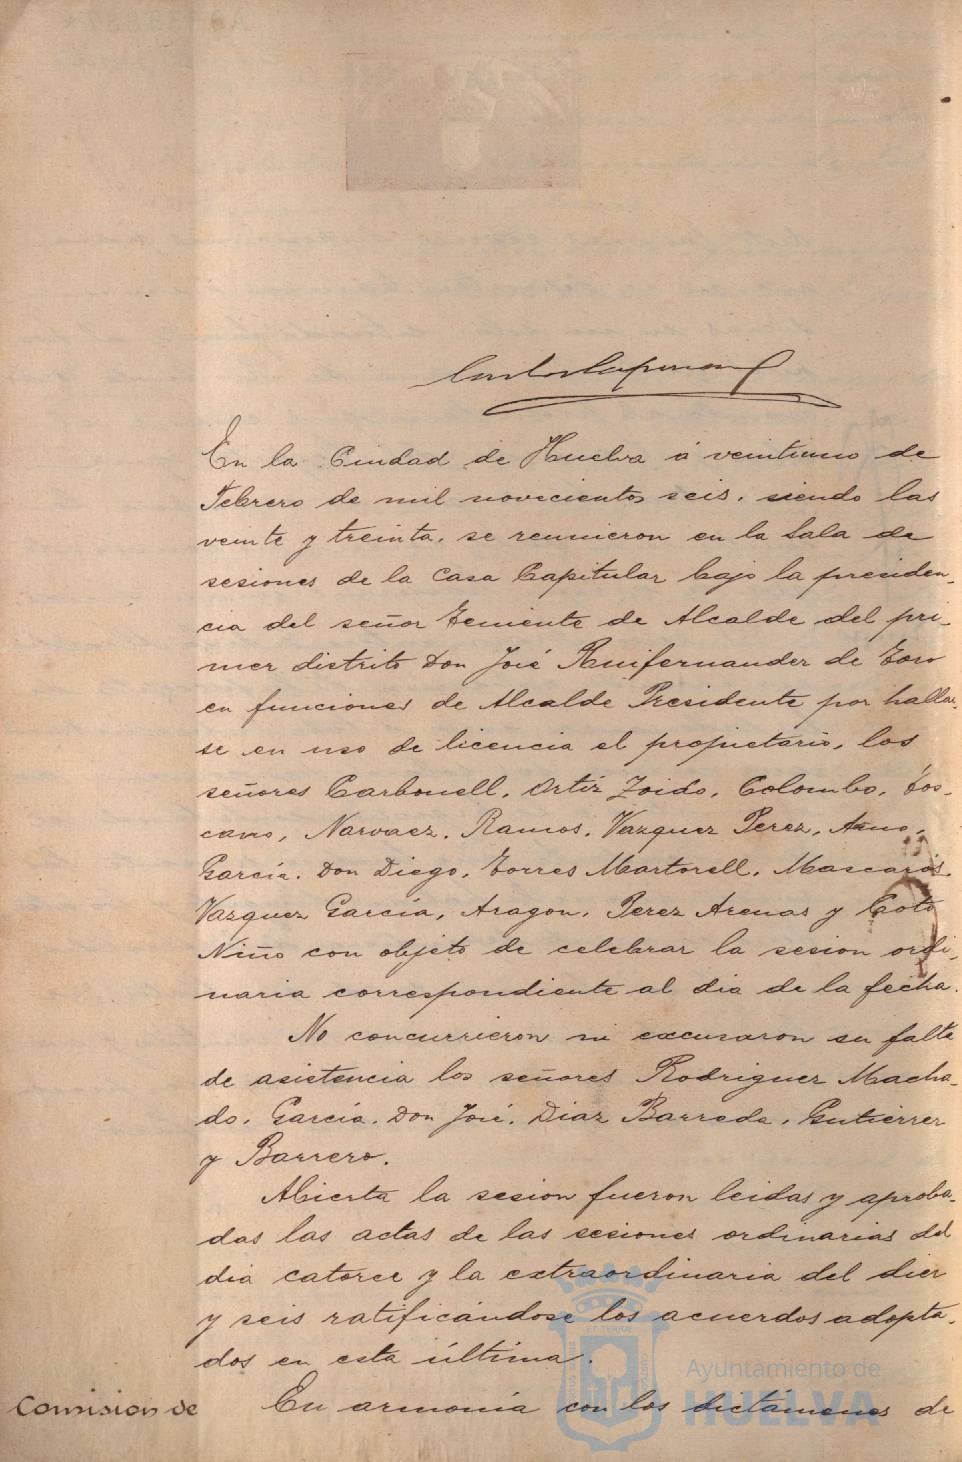 En la Ciudad de Huelva á veintiuno de
Febrero de mil novecientos seis, siendo las
veinte y treinta, se reunieron en la Sala de
sesiones de la Casa Capitular bajo la presiden-
cia del señor Teniente de Alcalde del pri-
mer distrito Don José Ruifernandez de Toro
en funciones de Alcalde Presidente por hallar-
se en uso de licencia el propietario, los
señores Carbonell, Ortiz Zoido, Colombo, Tos-
cano, Narvaez, Ramos, Vazquez Perez,
García, Don Diego, Torres Martorell, Mascarós,
Vazquez García, Aragon, Perez Arenas y Coto
Niño con objeto de celebrar la sesion ordi-
naria correspondiente al dia de la fecha.
No concurrieron ni excusaron su falta
de asistencia los señores Rodriguez Macha-
do, García, Don José, Diaz Barreda, Gutierrez
y Barrero.
Abierta la sesion fueron leidas y aproba-
das las actas de las sesiones ordinarias del
dia catorce y la extraordinaria del diez
y seis ratificándose los acuerdos adopta-
dos en esta última.
Comision de En armonía con los dictamenes de
Ayuntamiento de
HUELVA